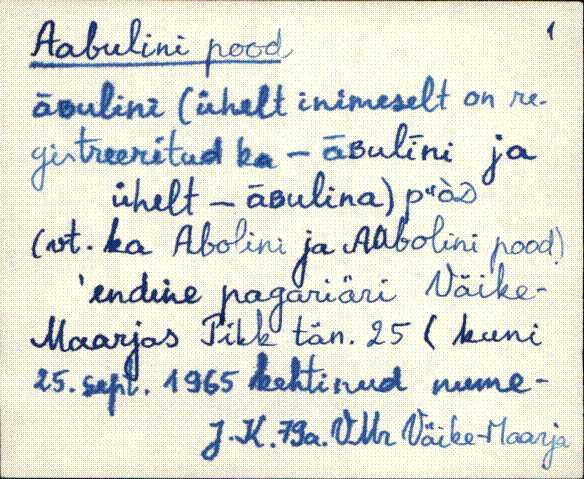 Aabulini pood 1
āʙulini (ühelt inimeselt on re-
gistreeritud ka — āʙulīni ja
ühelt — āʙulina) pᵘòᴅ
(vt. ka Abolini ja Aabolini pood)
'endine pagariäri Väike-
Maarjas Pikk tän. 25 (kuni
25. sept. 1965 kehtinud nume-
J.K. 79a. VMr Väike-Maarja